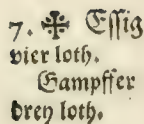 7. ✠ Essig
vier loth.
Gampffer
drey loth.